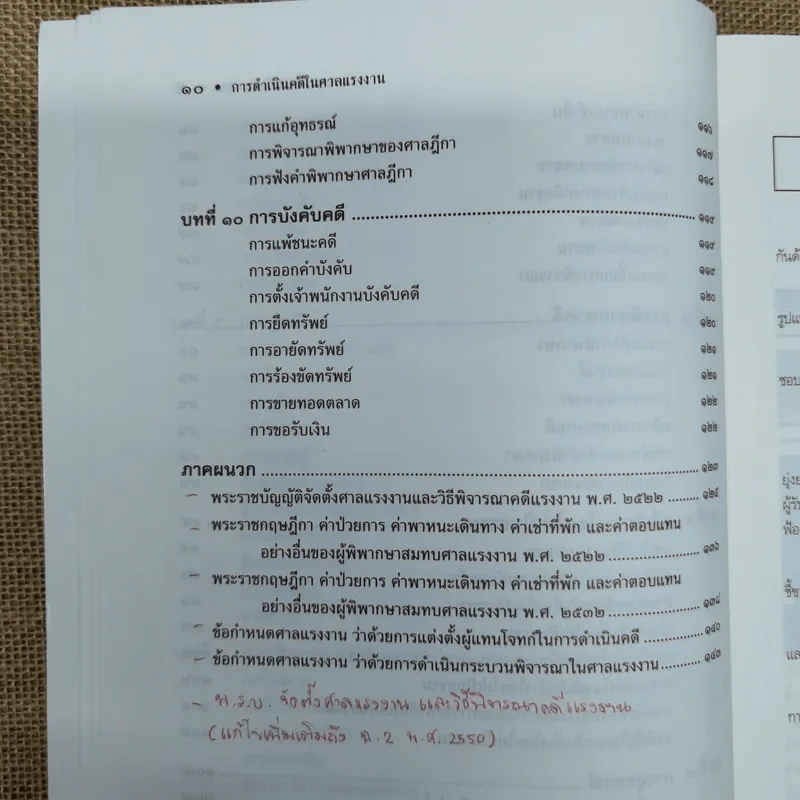 ๑๐ • การดำเนินคดีในศาลแรงงาน
การแก้อุทธรณ์ ๑๑๖
การพิจารณาพิพากษาของศาลฎีกา ๑๑๗
การฟังคำพิพากษาศาลฎีกา ๑๑๘
บทที่ ๑๐ การบังคับคดี ๑๑๙
การแพ้ชนะคดี ๑๑๙
การออกคำบังคับ ๑๑๙
การตั้งเจ้าพนักงานบังคับคดี ๑๒๐
การยึดทรัพย์ ๑๒๐
การอายัดทรัพย์ ๑๒๑
การร้องขัดทรัพย์ ๑๒๑
การขายทอดตลาด ๑๒๒
การขอรับเงิน ๑๒๒
ภาคผนวก ๑๒๓
– พระราชบัญญัติจัดตั้งศาลแรงงานและวิธีพิจารณาคดีแรงงาน พ.ศ. ๒๕๒๒ ๑๒๕
– พระราชกฤษฎีกา ค่าป่วยการ ค่าพาหนะเดินทาง ค่าเช่าที่พัก และค่าตอบแทน
อย่างอื่นของผู้พิพากษาสมทบศาลแรงงาน พ.ศ. ๒๕๒๒ ๑๓๖
– พระราชกฤษฎีกา ค่าป่วยการ ค่าพาหนะเดินทาง ค่าเช่าที่พัก และค่าตอบแทน
อย่างอื่นของผู้พิพากษาสมทบศาลแรงงาน พ.ศ. ๒๕๓๒ ๑๓๘
– ข้อกำหนดศาลแรงงาน ว่าด้วยการแต่งตั้งผู้แทนโจทก์ในการดำเนินคดี ๑๔๐
– ข้อกำหนดศาลแรงงาน ว่าด้วยการดำเนินกระบวนพิจารณาในศาลแรงงาน ๑๔๓
– พ.ร.บ. จัดตั้งศาลแรงงาน และวิธีพิจารณาคดีแรงงาน
(แก้ไขเพิ่มเติมถึง ฉ.2 พ.ศ. 2550)
กันด้
รูปแบ
ชอบ
ผู้รับ
ฟ้อง
ชี้ขา
และ
กา